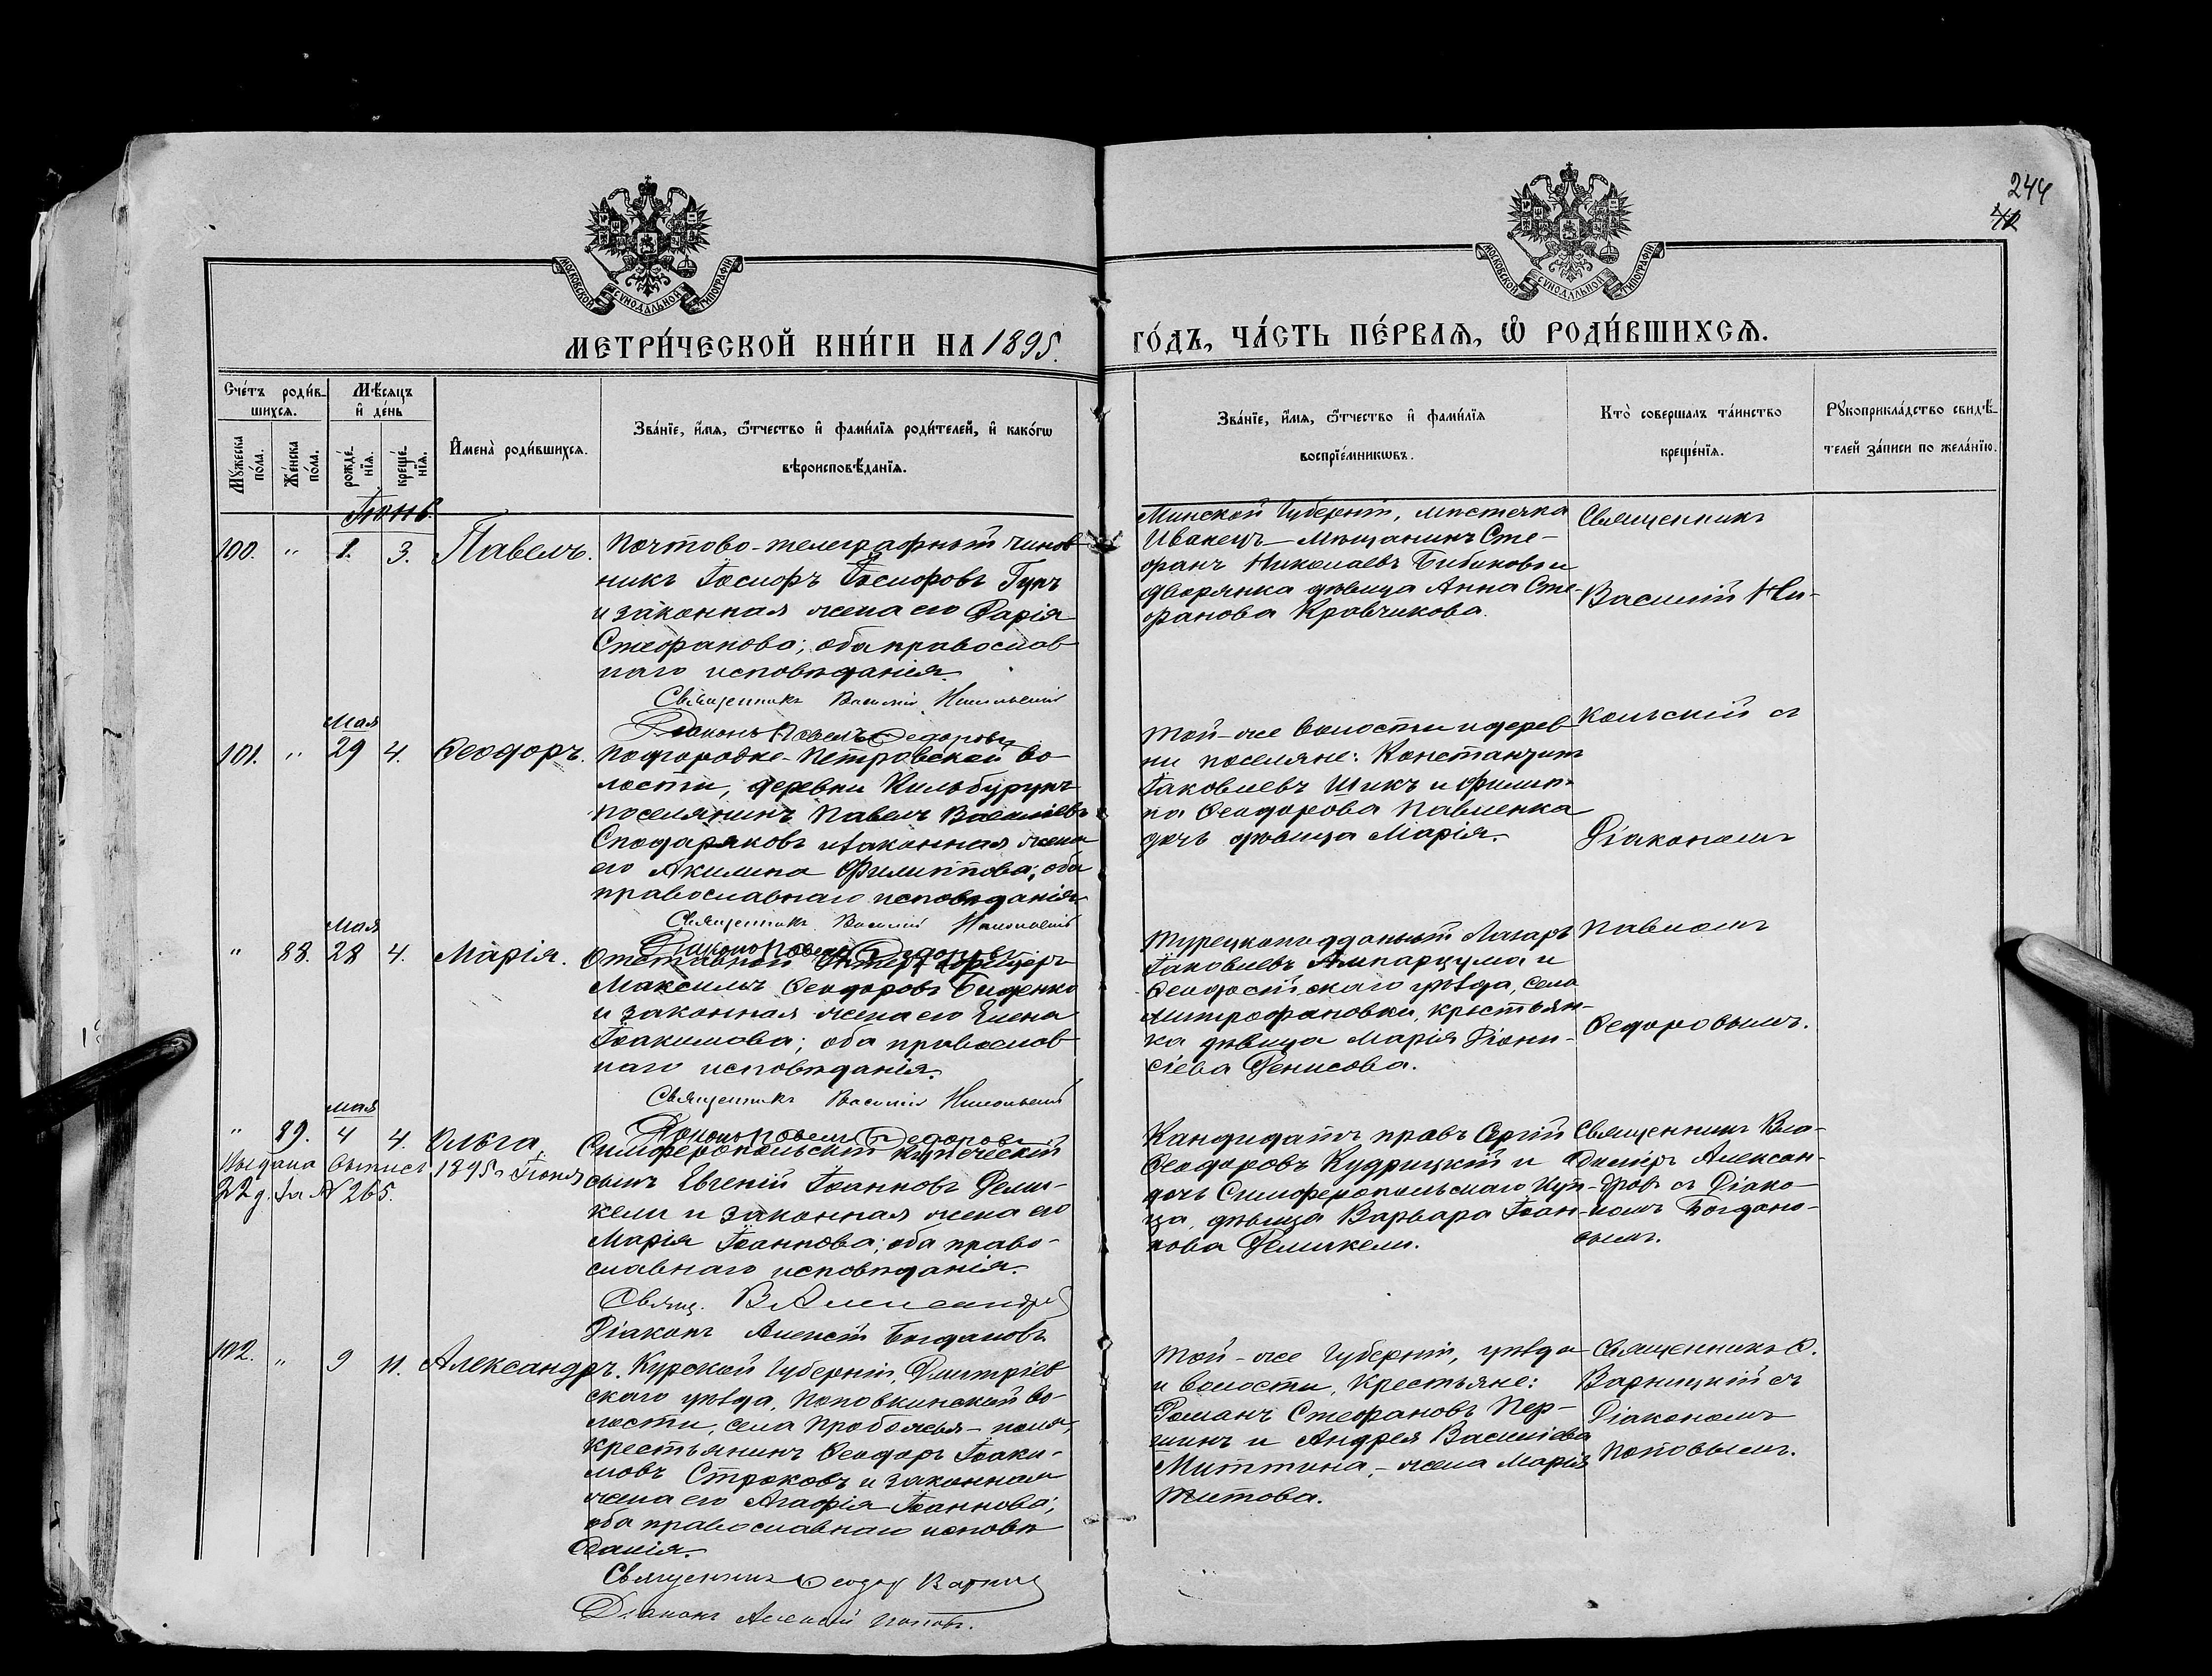 244
42
МОСКОВСКОЙ СѴНОДАЛЬНОЙ ТИПОГРАФІИ
МОСКОВСКОЙ СѴНОДАЛЬНОЙ ТИПОГРАФІИ
МЕТРИ́ЧЕСКОЙ КНИ́ГИ НА 1895.
ГО́ДЪ, ЧА́СТЬ ПЕ́РВАѦ, Ѡ҆ РОДИ́ВШИХСѦ.
Сче́тъ роди́в-
шихсѧ.
Мѣ́сѧцъ
и҆ де́нь
Мꙋ́жеска по́ла.
Же́нска по́ла.
рожде́-нїѧ.
креще́-нїѧ.
И҆мена̀ роди́вшихсѧ.
Зва́нїе, и҆́мѧ, ѻ҆́тчество и҆ фами́лїѧ роди́телей, и҆ како́гѡ
вѣроисповѣ́данїѧ.
Зва́нїе, и҆́мѧ, ѻ҆́тчество и҆ фами́лїѧ
воспрїе́мникѡвъ.
Кто̀ соверша́лъ та́инство
креще́нїѧ.
Рꙋкоприкла́дство свидѣ́-
телей за́писи по жела́нїю.
Іюнь.
100. " 1. 3. Павелъ.
Почтово-телеграфный чинов
никъ Іосифъ Іосифовъ Гунъ
и законная жена его Дарія
Стефанова; оба православ
наго исповѣданія.
Священникъ Василій Никольскій
Діаконъ Павелъ Ѳедоровъ
Минской Губерніи, мѣстечка
Ивенецъ Мѣщанинъ Сте-
фанъ Николаевъ Бибиковъ и
дворянка дѣвица Анна Сте-
фанова Кравчикова.
Священникъ
Василій Ни-
Мая
101. " 29 4. Ѳеодоръ.
Подгородне-Петровской во-
лости, деревни Кильбурунъ
поселянинъ Павелъ Васильевъ
Снодаряковъ и законная жена
его Акилина Филиппова; оба
православнаго исповѣданія
Священникъ Василій Никольскій
Діаконъ Павелъ Ѳедоровъ
Той-же волости и дерев
ни поселяне: Константинъ
Іаковлевъ Шикъ и Филип-
па Ѳеодорова Павленка
дочь дѣвица Марія.
кольскій съ
Діакономъ
Мая
" 88. 28 4. Марія.
Отставной Унтеръ Офицеръ
Максимъ Ѳеодоровъ Биденко
и законная жена его Елена
Іоакимова; оба православ
наго исповѣданія.
Священникъ Василій Никольскій
Діаконъ Павелъ Ѳедоровъ
Турецкоподданный Лазарь
Іаковлевъ Ампарцума и
Ѳеодосійскаго уѣзда, села
Митрофановки, крестьян-
ка дѣвица Марія Діони-
сіева Денисова.
Павломъ
Ѳедоровымъ.
мая
" 89. 4 4. Ольга
Выдана выпись 1895 г. Іюня
22 д. за № 265.
Симферопольскій купеческій
сынъ Евгеній Іоанновъ Деми-
кели и законная жена его
Марія Іоаннова; оба право-
славнаго исповѣданія.
Свящ. В Александр
Діаконъ Алексѣй Богдановъ
Кандидатъ правъ Сергій
Ѳеодоровъ Кудрицкій и
дочь Симферопольскаго Куп-
ца, дѣвица Варвара Іоан-
нова Демикели.
Священникъ Вла-
диміръ Алексан-
дровъ съ Діако-
номъ Богдано-
вымъ.
102. " 9 11. Александръ.
Курской Губерніи, Дмитріев
скаго уѣзда, Поповкинской во-
лости, села Пробожья-поля,
крестьянинъ Ѳеодоръ Іоаки-
мовъ Строковъ и законная
жена его Агафія Іоаннова;
оба православнаго исповѣ
данія.
Священникъ Ѳеодоръ Варниц
Діаконъ Алексѣй Поповъ.
Той-же Губерніи, уѣзда
и волости, Крестьяне:
Романъ Стефановъ Пер-
шинъ и Андрея Василіева
Миттина,- жена Марія
Титова.
Священникъ Ѳ.
Варницкій съ
Діакономъ
Поповымъ.